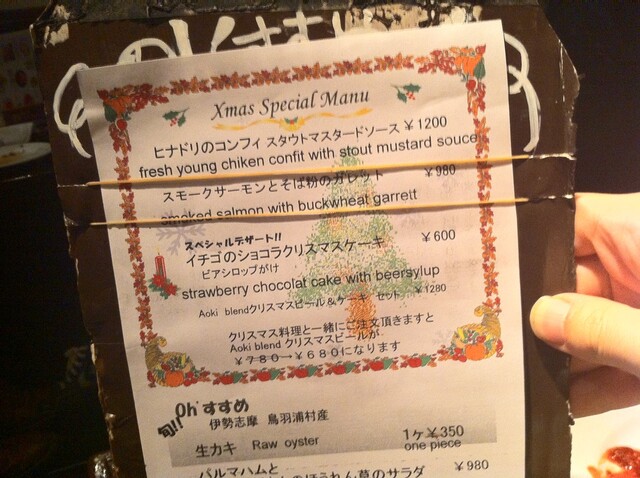 Xmas Special Manu
ヒナドリのコンフィ スタウトマスタードソース ￥1200
fresh young chiken confit with stout mustard souce
スモークサーモンとそば粉のガレット ￥980
smoked salmon with buckwheat garrett
スペシャルデザート!!
イチゴのショコラクリスマスケーキ ￥600
ビアシロップがけ
strawberry chocolat cake with beersylup
Aoki blendクリスマスビール＆ケーキ セット ￥1280
クリスマス料理と一緒にご注文頂きますと
Aoki blend クリスマスビールが
￥７８０→￥６８０になります
旬!! Oh'すすめ
伊勢志摩 鳥羽浦村産
生カキ Raw oyster 1ヶ￥350
one piece
パルマハムと
ほうれん草のサラダ ￥980